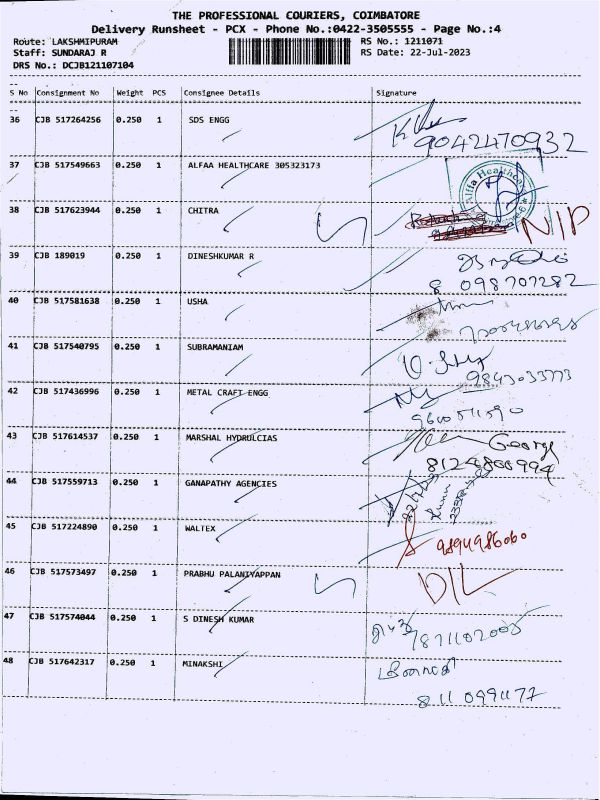 THE PROFESSIONAL COURIERS, COIMBATORE
Delivery Runsheet - PCX - Phone No.:0422-3505555 - Page No.:4
Route: LAKSHMIPURAM RS No.: 1211071
Staff: SUNDARAJ R RS Date: 22-Jul-2023
DRS No.: DCJB121107104
S No Consignment No Weight PCS Consignee Details Signature
36 CJB 517264256 0.250 1 SDS ENGG
9042470932
37 CJB 517549663 0.250 1 ALFAA HEALTHCARE 305323173
Alfaa Healthcare
38 CJB 517623944 0.250 1 CHITRA N/P
39 CJB 189019 0.250 1 DINESHKUMAR R
8 098707282
40 CJB 517581638 0.250 1 USHA
41 CJB 517540795 0.250 1 SUBRAMANIAM
9843033773
42 CJB 517436996 0.250 1 METAL CRAFT ENGG
43 CJB 517614537 0.250 1 MARSHAL HYDRULCIAS George
8124800994
44 CJB 517559713 0.250 1 GANAPATHY AGENCIES
45 CJB 517224890 0.250 1 WALTEX 9894986060
46 CJB 517573497 0.250 1 PRABHU PALANIYAPPAN D/L
47 CJB 517574044 0.250 1 S DINESH KUMAR
7871102005
48 CJB 517642317 0.250 1 MINAKSHI மீனாட்சி
8110991177